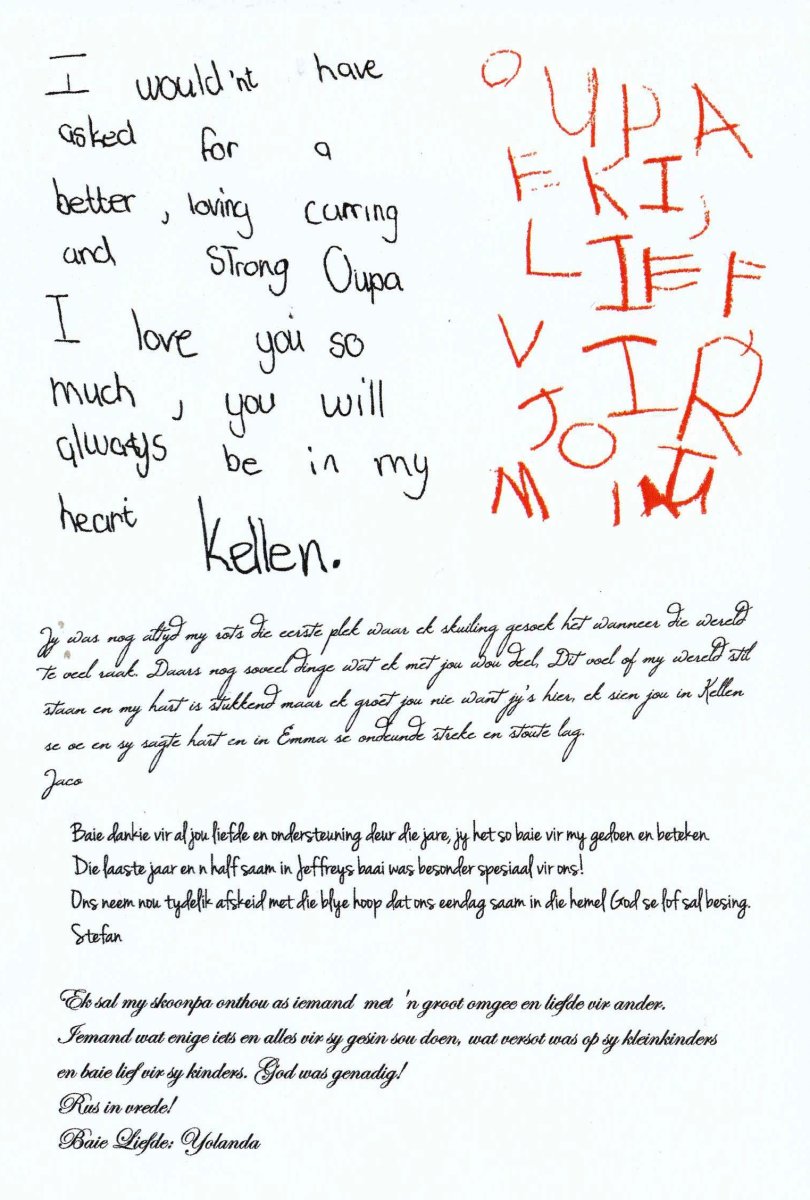 I would'nt have
asked for a
better, loving carring
and strong Oupa
I love you so
much, you will
always be in my
heart
Kellen.
OUPA
EKI,
LIEF
VIR
JOI
M
Jy was nog altyd my rots die eerste plek waar ek skuiling gesoek het wanneer die wereld
te veel raak. Daars nog soveel dinge wat ek met jou wou deel, Dit voel of my wereld stil
staan en my hart is stukkend maar ek groet jou nie want jy's hier, ek sien jou in Kellen
se oe en sy sagte hart en in Emma se ondeunde streke en stoute lag.
Jaco
Baie dankie vir al jou liefde en ondersteuning deur die jare, jy het so baie vir my gedoen en beteken.
Die laaste jaar en n half saam in Jeffreys baai was besonder spesiaal vir ons!
Ons neem nou tydelik afskeid met die blye hoop dat ons eendag saam in die hemel God se lof sal besing.
Stefan
Ek sal my skoonpa onthou as iemand met 'n groot omgee en liefde vir ander.
Iemand wat enige iets en alles vir sy gesin sou doen, wat versot was op sy kleinkinders
en baie lief vir sy kinders. God was genadig!
Rus in vrede!
Baie Liefde: Yolanda